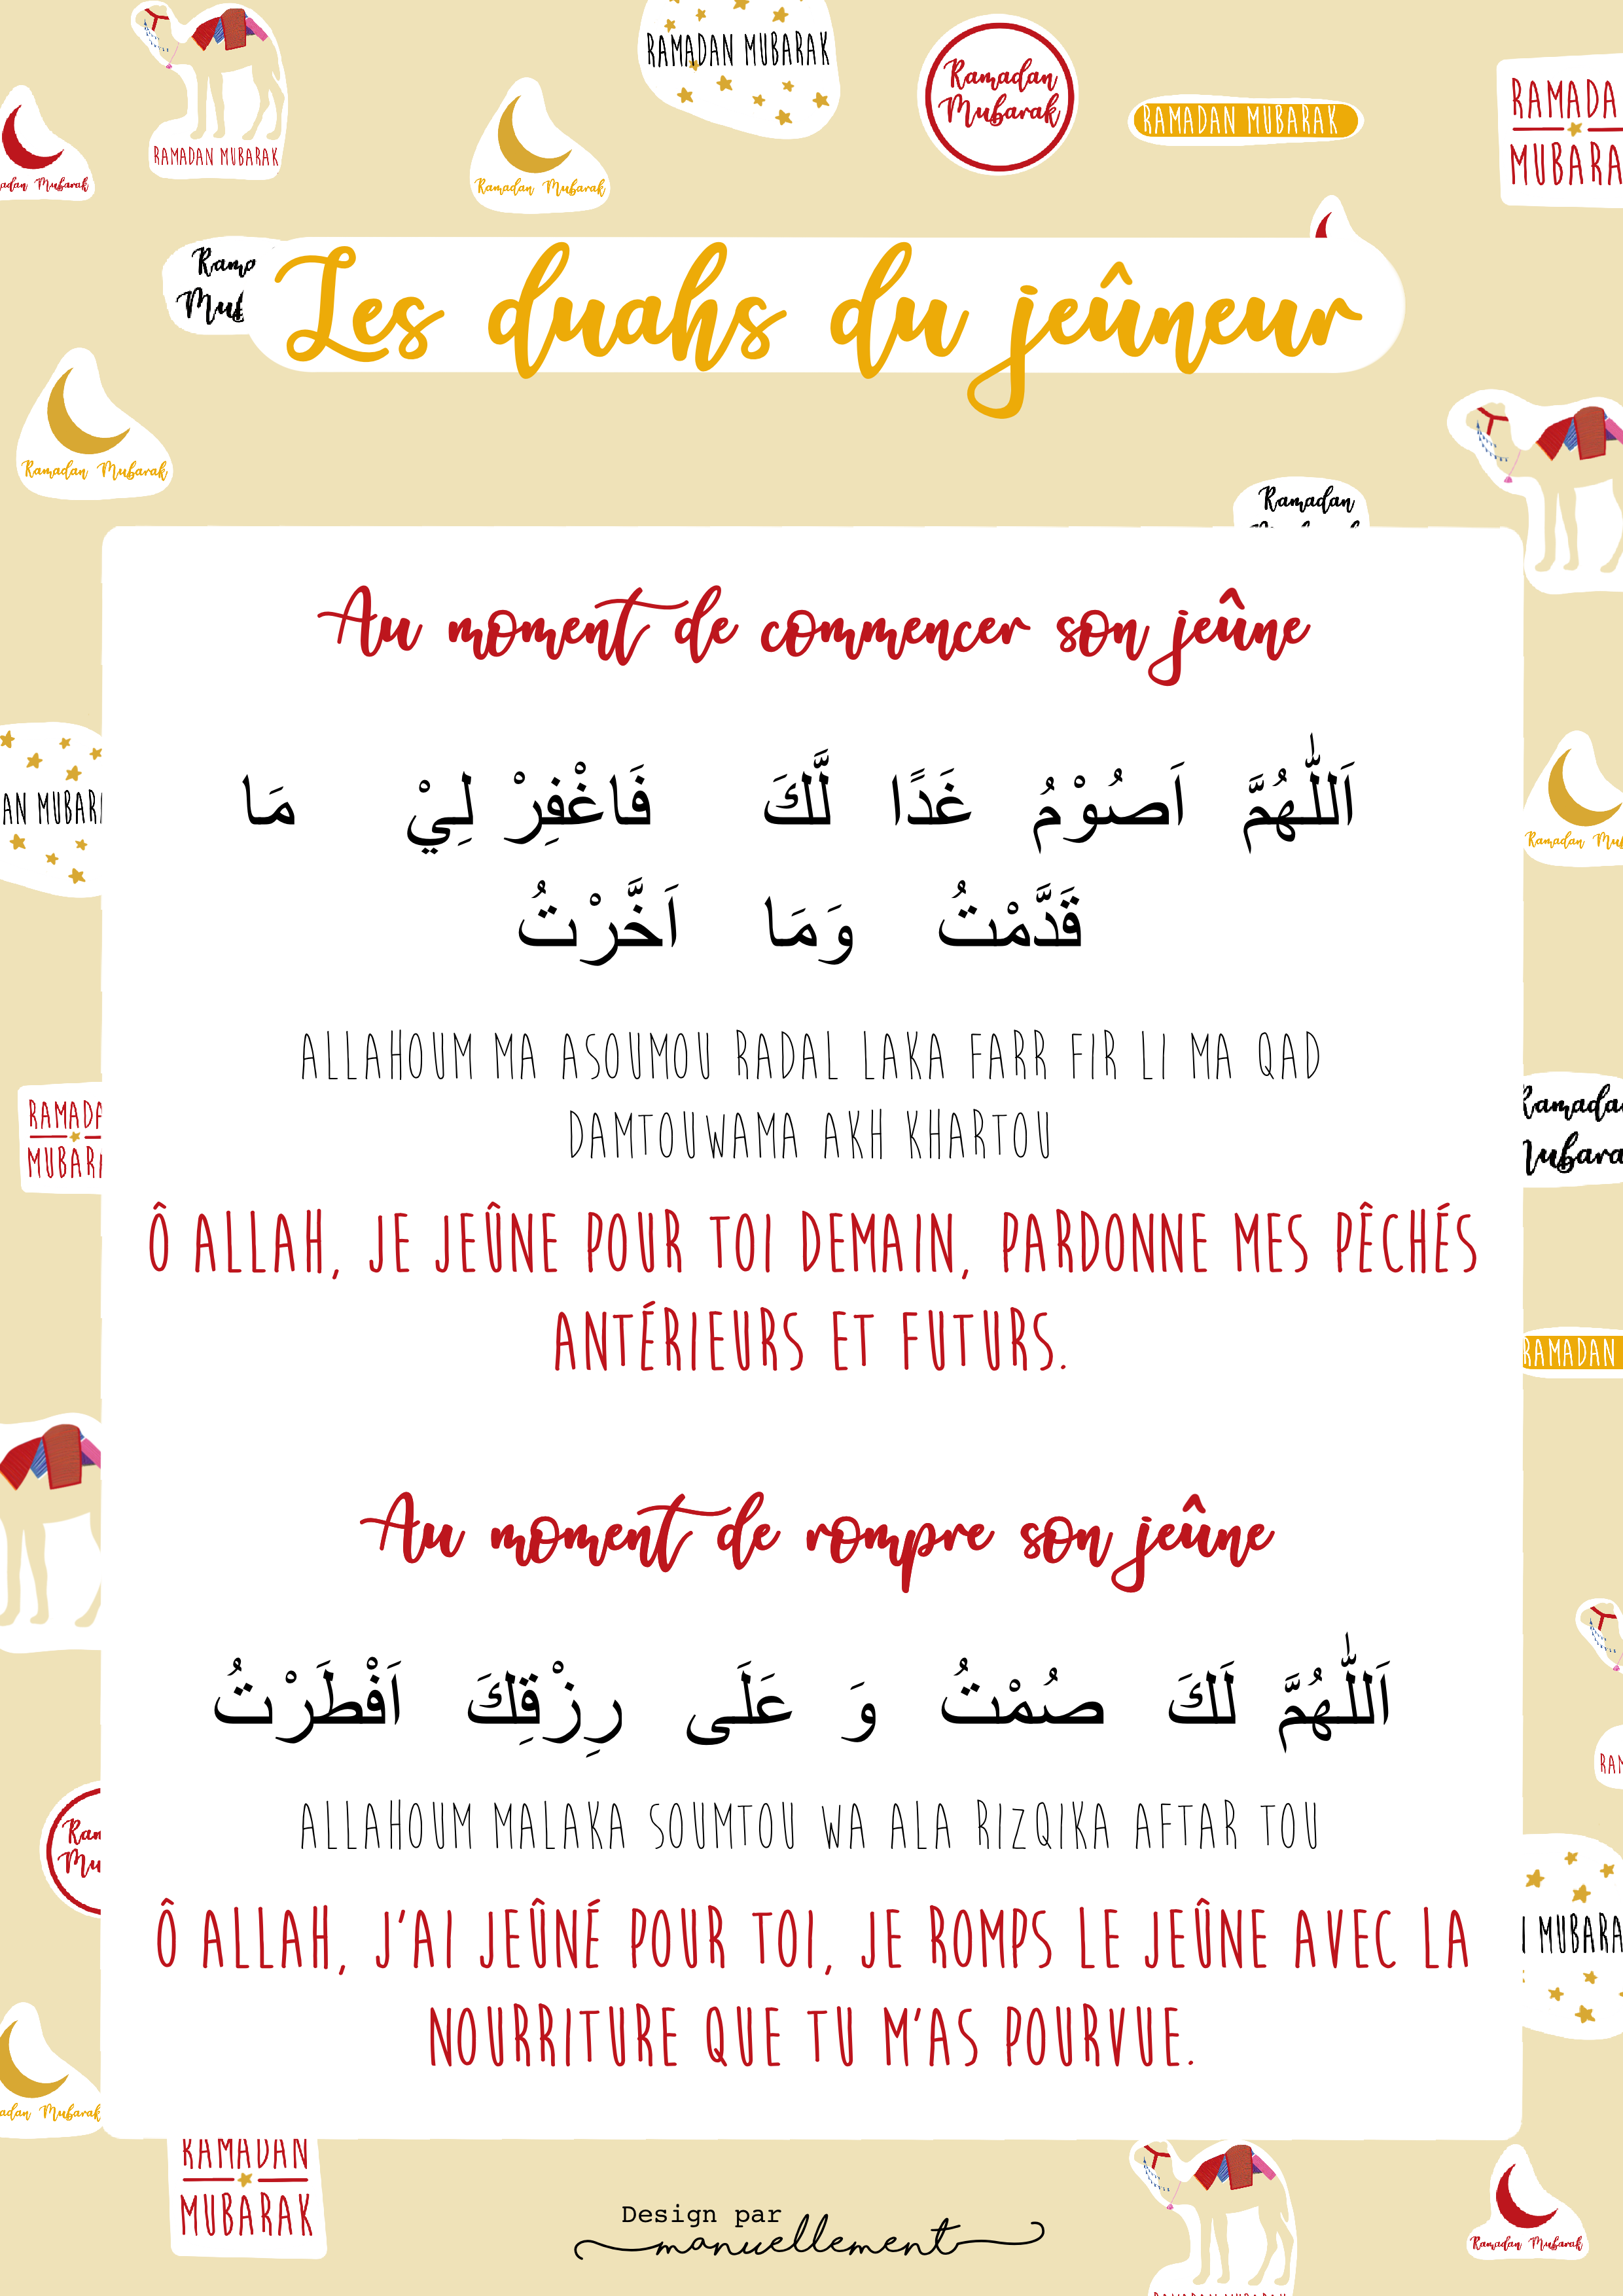 RAMADAN MUBARAK
Ramadan
Mubarak
RAMADAN MUBARAK
RAMADAN MUBARAK
Ramadan Mubarak
Mubarak
Les duahs du jeûneur
Ramadan Mubarak
Ramadan
Au moment de commencer son jeûne
اَللّٰهُمَّ اَصُوْمُ غَدًا لَّكَ فَاغْفِرْ لِيْ مَا
قَدَّمْتُ وَمَا اَخَّرْتُ
ALLAHOUM MA ASOUMOU RADAL LAKA FARR FIR LI MA QAD
DAMTOUWAMA AKH KHARTOU
Ô ALLAH, JE JEÛNE POUR TOI DEMAIN, PARDONNE MES PÊCHÉS
ANTÉRIEURS ET FUTURS.
Au moment de rompre son jeûne
اَللّٰهُمَّ لَكَ صُمْتُ وَ عَلَى رِزْقِكَ اَفْطَرْتُ
ALLAHOUM MALAKA SOUMTOU WA ALA RIZQIKA AFTAR TOU
Ô ALLAH, J'AI JEÛNÉ POUR TOI, JE ROMPS LE JEÛNE AVEC LA
NOURRITURE QUE TU M'AS POURVUE.
RAMADAN
MUBARAK
Design par
manuellement
Ramadan Mubarak